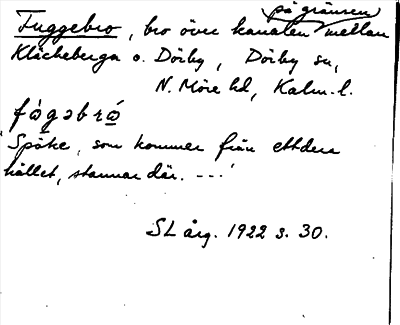 på gränsen
Fuggebro, bro över kanalen mellan
Kläckeberga o. Dörby, Dörby sn,
N. Möre hd, Kalm. l.
fógəbró
'Spöke, som kommer från ettdera
hållet, stannar där. ---'
SL årg. 1922 s. 30.